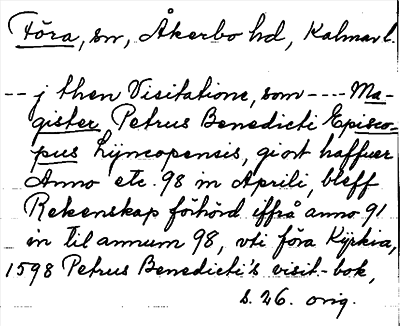 Föra, sn, Åkerbo hd, Kalmar l.
-- j then Visitatione, som ---- Ma-
gister Petrus Benedicti Episco-
pus Lijncopensis, giort haffuer
Anno etc. 98 in Aprili, bleff
Rekenskap förhörd iffrå anno 91
in til annum 98, vti föra Kyrkia,
1598 Petrus Benedicti's visit.-bok,
s. 26. orig.